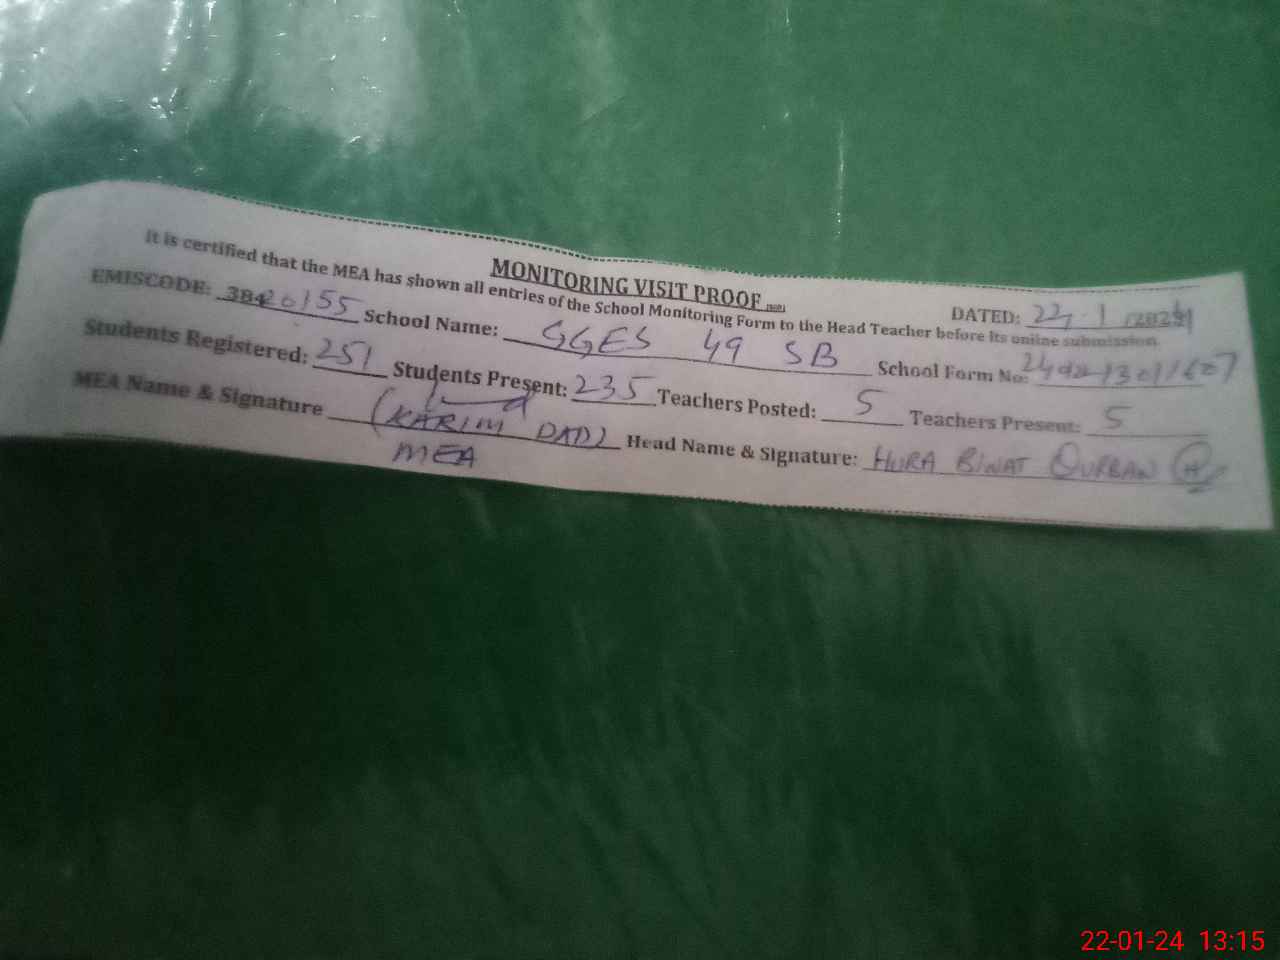 MONITORING VISIT PROOF
DATED: 22-1-2024
It is certified that the MEA has shown all entries of the School Monitoring Form to the Head Teacher before its online submission.
EMISCODE: 38420155 School Name: GGES 49 SB School Form No:
Students Registered: 251 Students Present: 235 Teachers Posted: 5 Teachers Present: 5
MEA Name & Signature (KARIM DAD) Head Name & Signature: HURA BINAT QURBAN
MEA
22-01-24 13:15